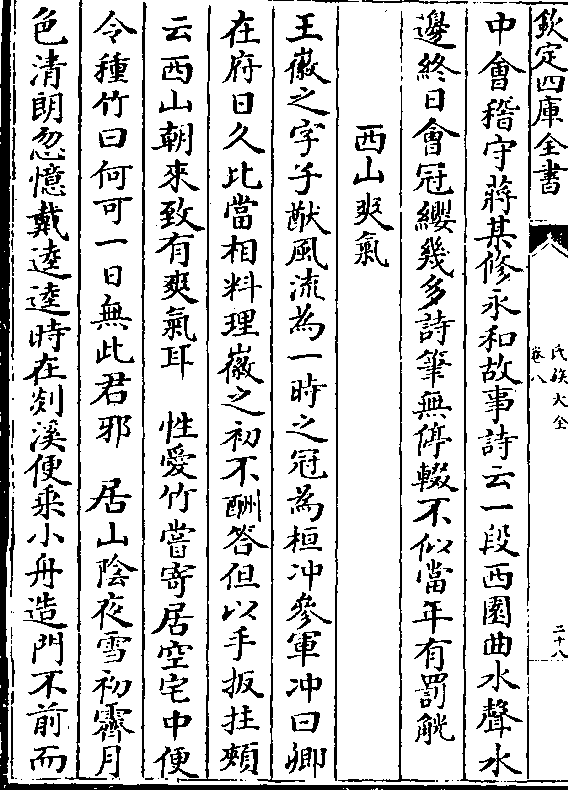 欽定四庫全書
氏族大全
卷八
二十八
中會稽守蔣某修永和故事詩云一段西園曲水聲水
邊終日會冠纓幾多詩筆無停輟不似當年有罰觥
西山爽氣
王徽之字子猷風流為一時之冠為桓冲參軍冲曰卿
在府日久比當相料理徽之初不酬答但以手扳拄頰
云西山朝來致有爽氣耳　性愛竹嘗寄居空宅中便
令種竹曰何可一日無此君邪　居山陰夜雪初霽月
色清朗忽憶戴逵逵時在剡溪便乘小舟造門不前而